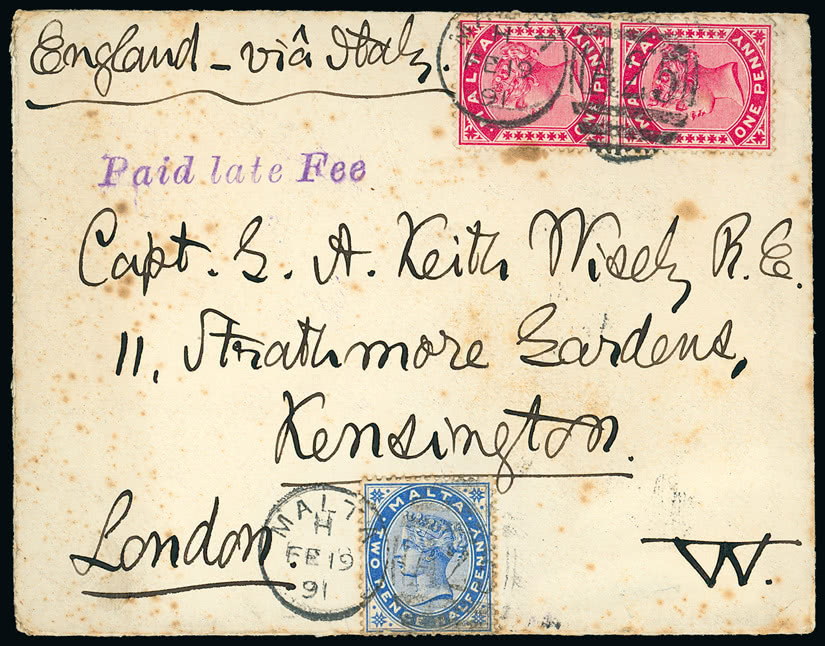 England - viâ Italy.
MALTA
FE 19
91
MALTA
ONE PENNY
MALTA
ONE PENNY
Paid late Fee
Capt. G. A. Keith Wisely R.E.
11, Strathmore Gardens,
Kensington.
London.
W.
MALTA
H
FE 19
91
MALTA
TWO PENCE HALFPENNY